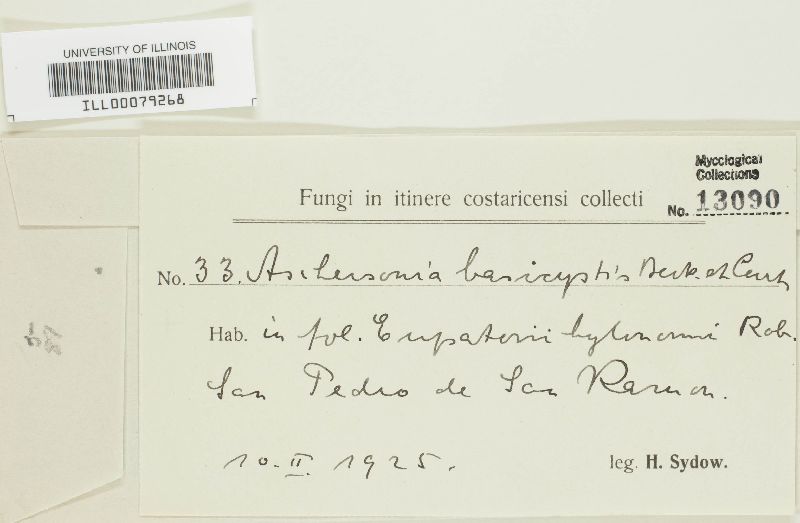 UNIVERSITY OF ILLINOIS
ILL00079268
Mycological
Collections
No. 13090
Fungi in itinere costaricensi collecti
No. 33. Aschersonia basicystis Berk. et Curt.
Hab. in fol. Eupatorii hylonomi Rob.
San Pedro de San Ramon.
10. II. 1925.
leg. H. Sydow.